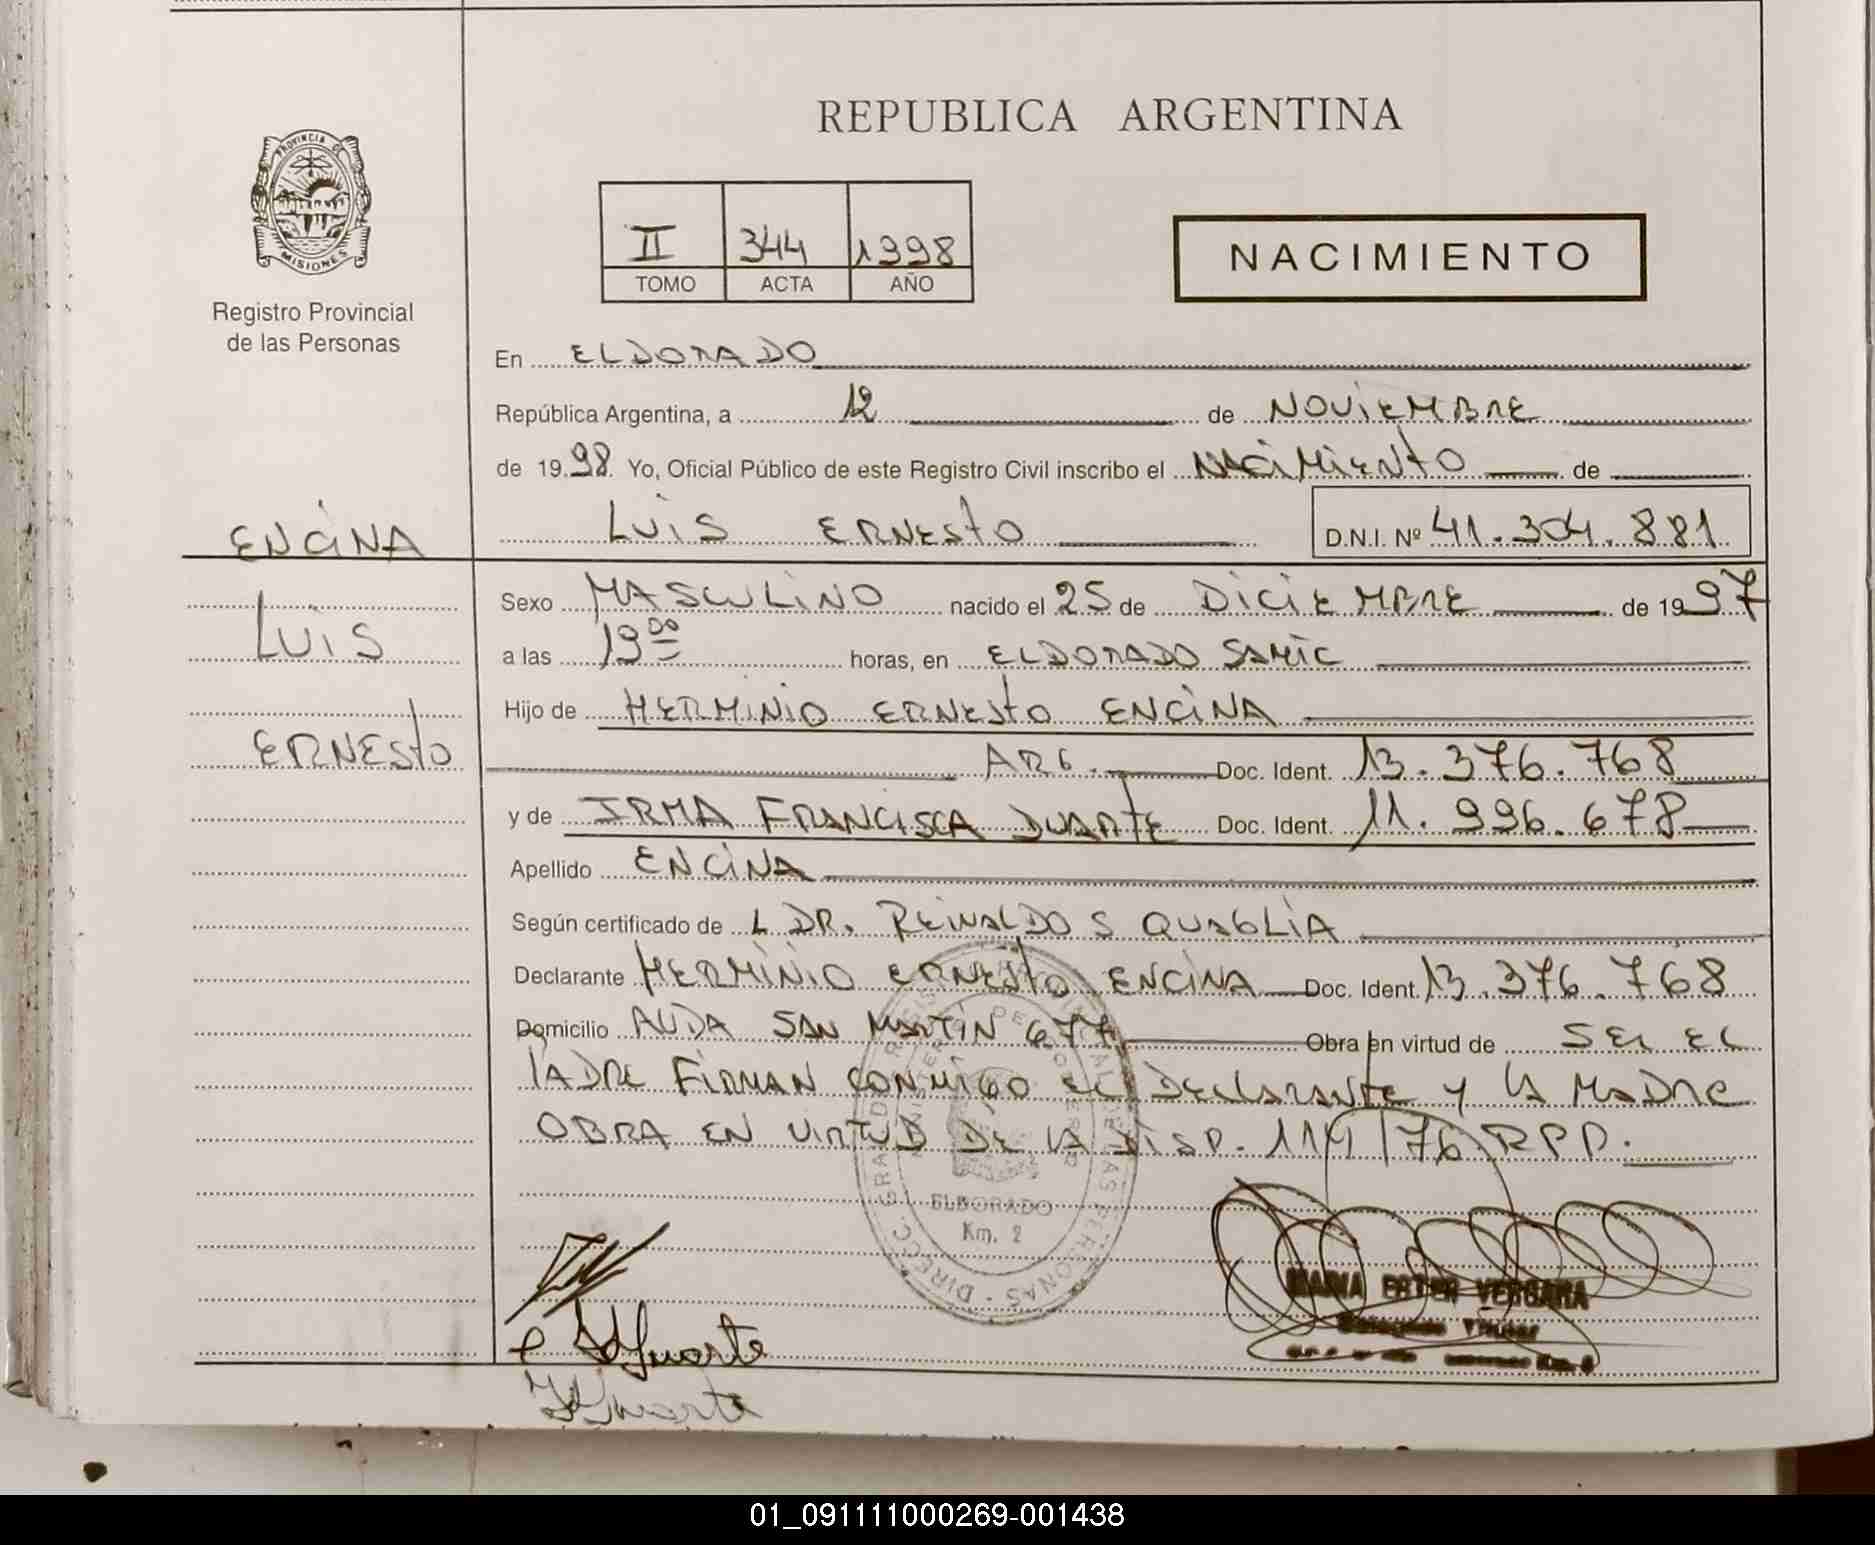 REPUBLICA ARGENTINA
PROVINCIA DE
MISIONES
Registro Provincial
de las Personas
II 344 1998
TOMO ACTA AÑO
NACIMIENTO
En ELDORADO
República Argentina, a 12 de NOVIEMBRE
de 1998. Yo, Oficial Público de este Registro Civil inscribo el NACIMIENTO de
LUIS ERNESTO D.N.I. Nº 41.304.881
ENCINA
LUIS
ERNESTO
Sexo MASCULINO nacido el 25 de DICIEMBRE de 1997
a las 19 00 horas, en ELDORADO SAMIC
Hijo de HERMINIO ERNESTO ENCINA
ARG. Doc. Ident. 13.376.768
y de IRMA FRANCISCA DUARTE Doc. Ident. 11.996.678
Apellido ENCINA
Según certificado de L DR. REINALDO S QUAGLIA
Declarante HERMINIO ERNESTO ENCINA Doc. Ident. 13.376.768
Domicilio AVDA SAN MARTIN 677 Obra en virtud de SER EL
PADRE FIRMAN CONMIGO EL DECLARANTE Y LA MADRE
OBRA EN VIRTUD DE LA DISP. 114/76 RPP.
ELDORADO
Km. 2
MARIA ESTER VERGARA
Titular
Duarte
Duarte
01_091111000269-001438